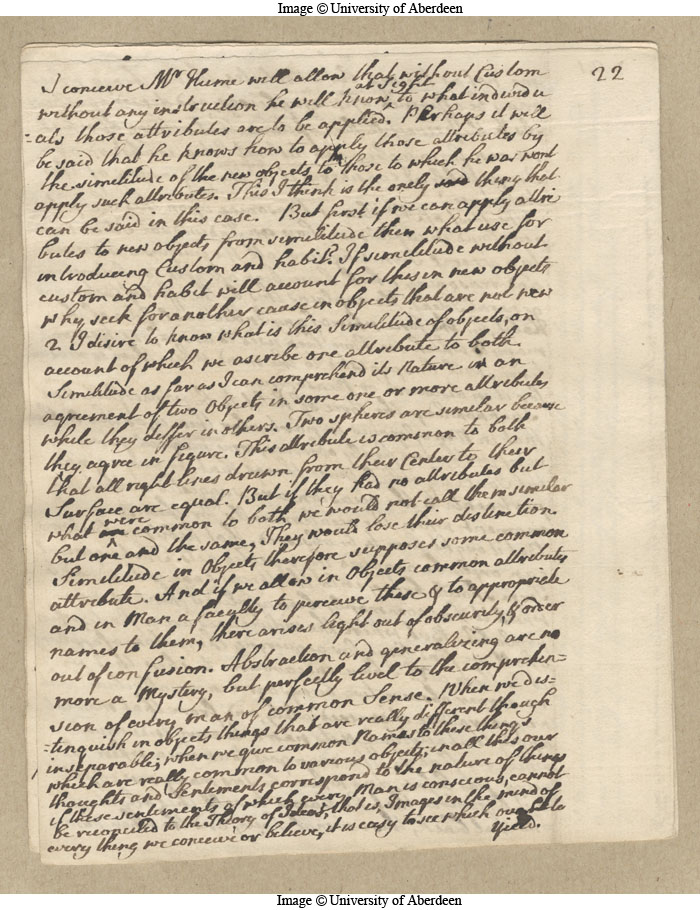 Image © University of Aberdeen
22
I conceive Mr Hume will allow that without Custom
without any instruction he will know at sight to what individu
=als those attributes are to be applied. Perhaps it will
be said that he knows how to apply those attributes by
the similitude of the new objects to those to which he was wont
apply such attributes. This I think is the onely thing that
can be said in this case. But first if we can apply attri
butes to new objects from similitude then what use for
introducing Custom and habit? If similitude without
custom and habit will account for this in new objects
why seek for another cause in objects that are not new
2 I disire to know what is this Similitude of objects, on
account of which we ascribe one attribute to both.
Similitude as far as I can comprehend its Nature is an
agreement of two Objects in some one or more attributes
while they differ in others. Two spheres are similar because
they agree in figure. This attribute is common to both
that all right lines drawn from their Center to their
Surface are equal. But if they had no attributes but
what were common to both we would not call them similar
but one and the same, They would lose their distinction.
Similitude in Objects therefore supposes some common
attribute. And if we allow in Objects common attributes
and in Man a faculty to perceive these & to appropriate
names to them, there arises light out of obscurity, & order
out of confusion. Abstraction and generalizing are no
more a Mystery, but perfectly level to the comprehen=
sion of every man of common Sense. When we dis=
=tinguish in objects things that are really different though
inseparable; when we give common Names to these things
which are really common to various objects; in all this our
thoughts and Sentiments correspond to the nature of things
if these sentiments of which every Man is conscious, cannot
be reconciled to the Theory of Ideas, that is, Images in the mind of
every thing we conceive or believe, it is easy to see which ought to
yield.
Image © University of Aberdeen